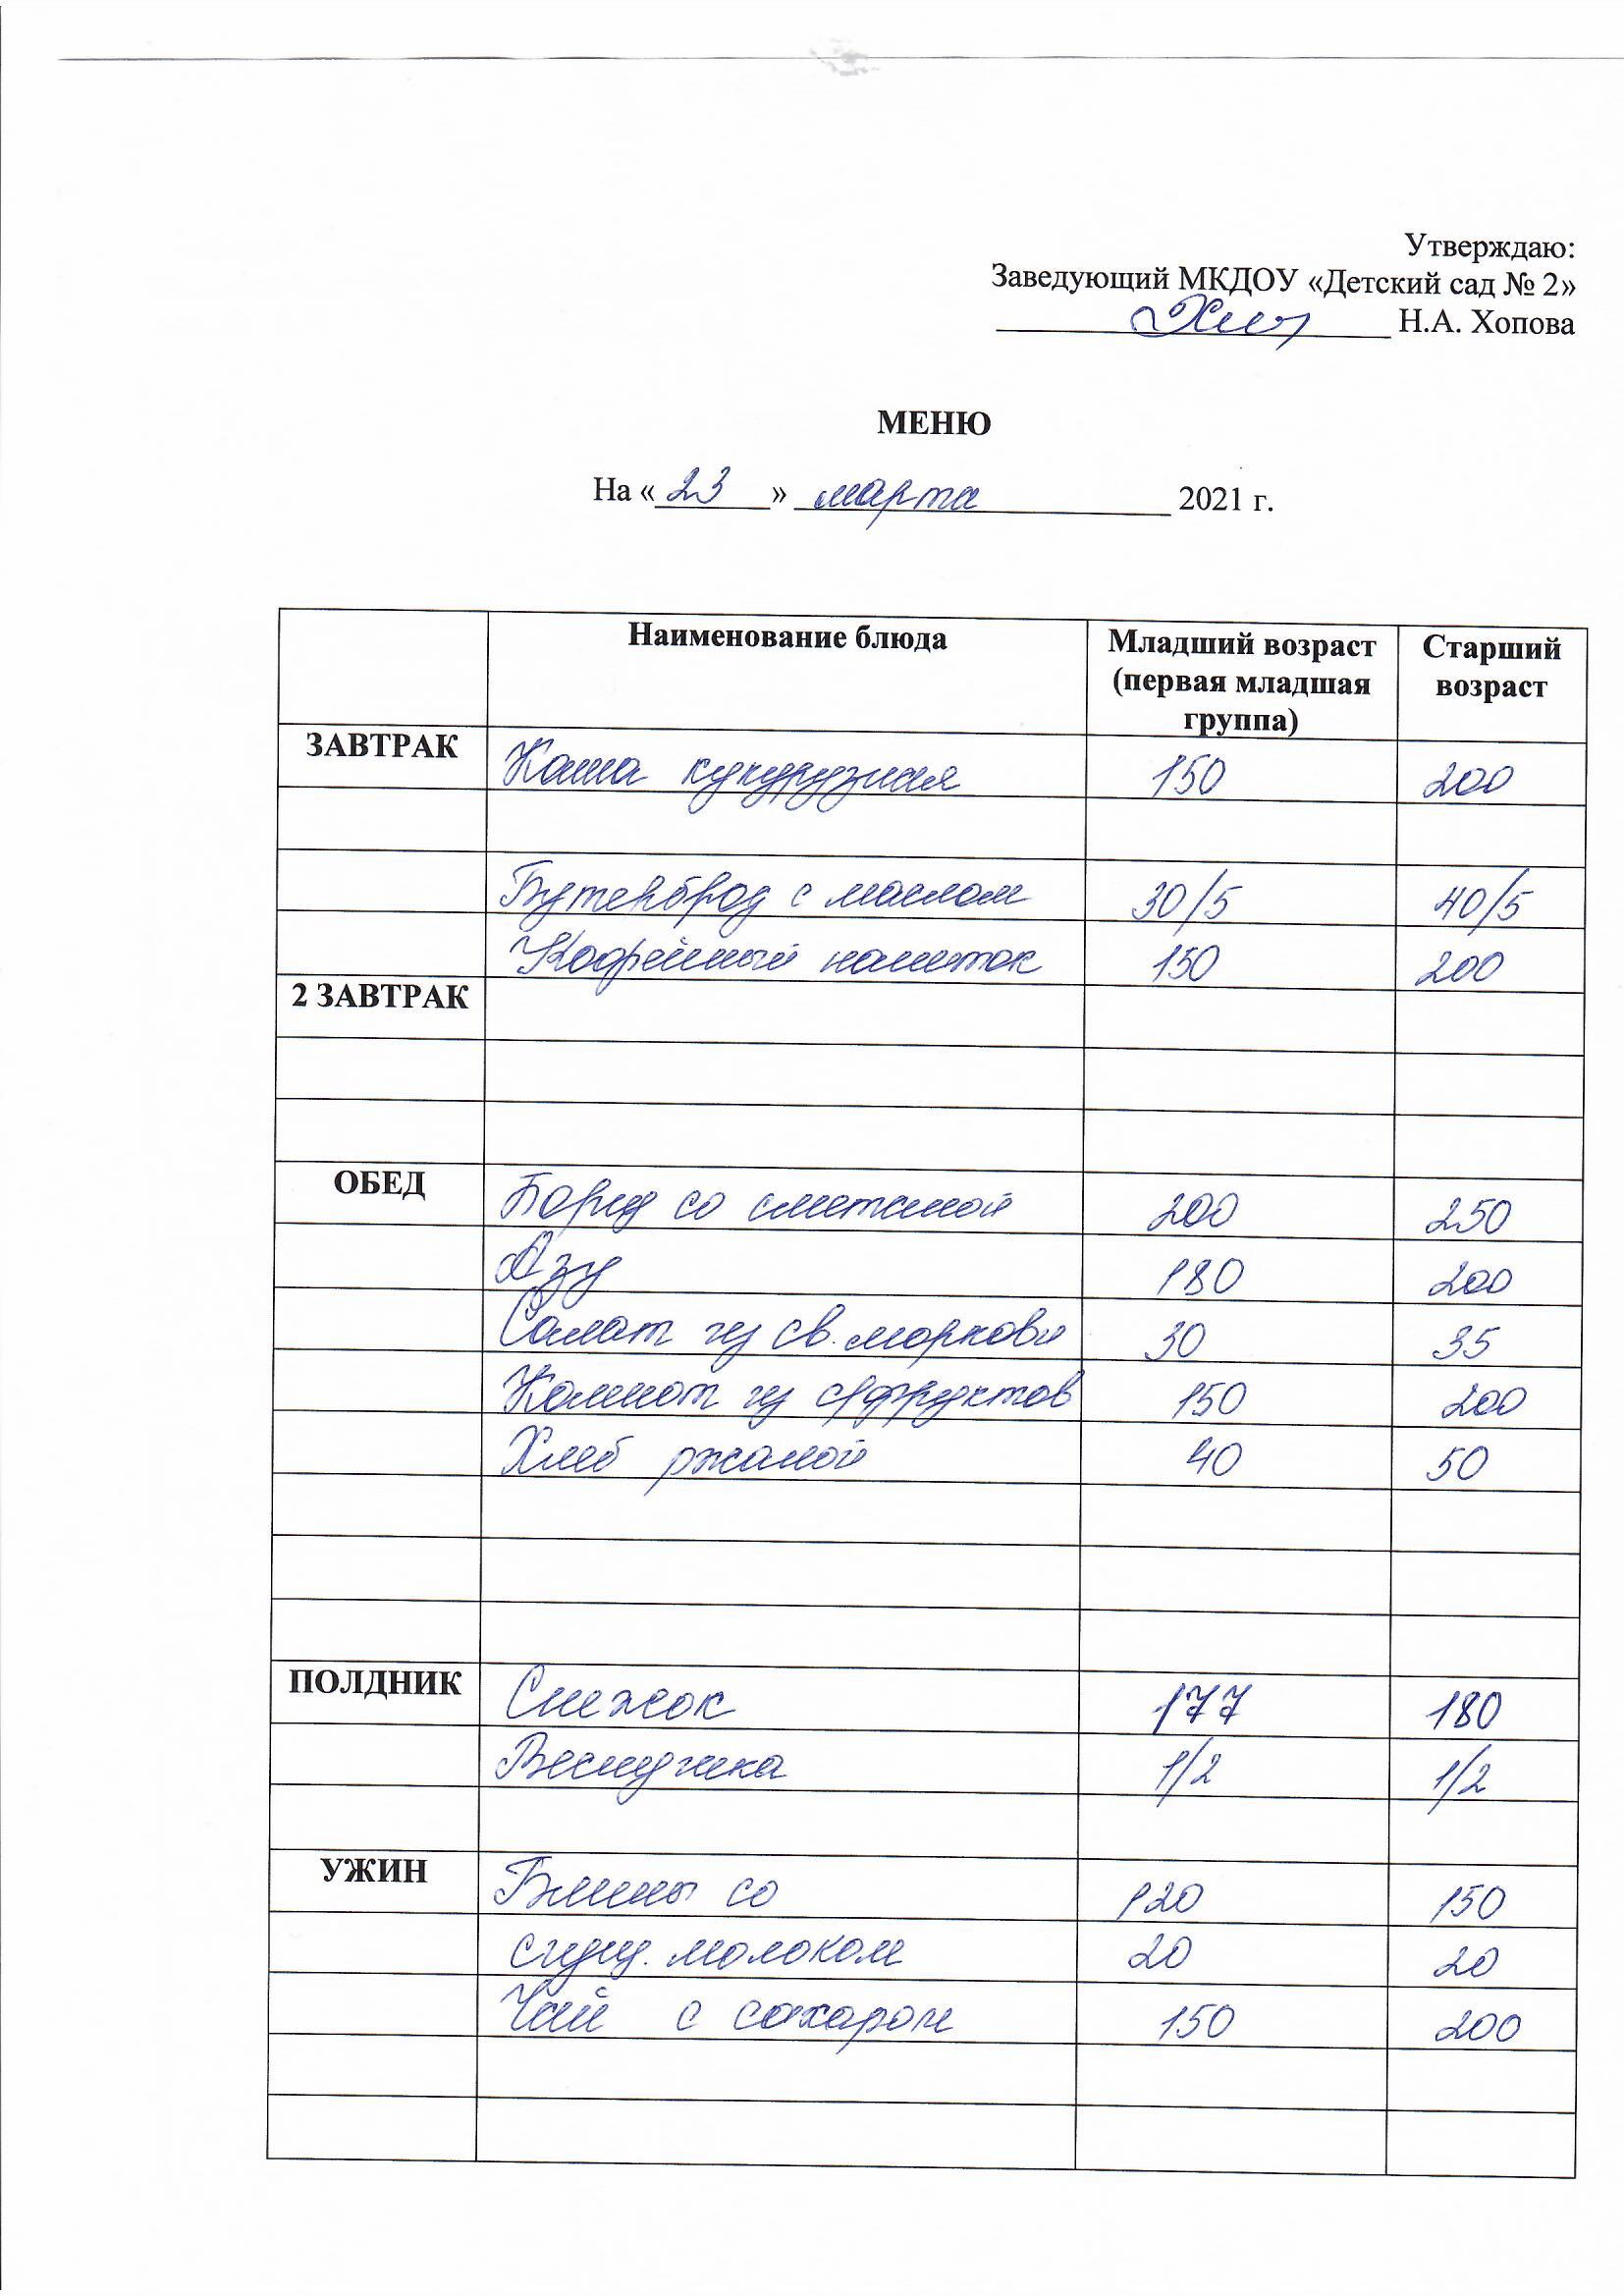 Утверждаю:
Заведующий МКДОУ «Детский сад № 2»
Н.А. Хопова
МЕНЮ
На «23» марта 2021 г.
Наименование блюда Младший возраст (первая младшая группа) Старший возраст
ЗАВТРАК Каша кукурузная 150 200
Бутерброд с маслом 30/5 40/5
Кофейный напиток 150 200
2 ЗАВТРАК
ОБЕД Борщ со сметаной 200 250
Азу 180 200
Салат из св. моркови 30 35
Компот из с/фруктов 150 200
Хлеб ржаной 40 50
ПОЛДНИК Снежок 177 180
Веснушка 1/2 1/2
УЖИН Блины со 120 150
сгущ. молоком 20 20
Чай с сахаром 150 200